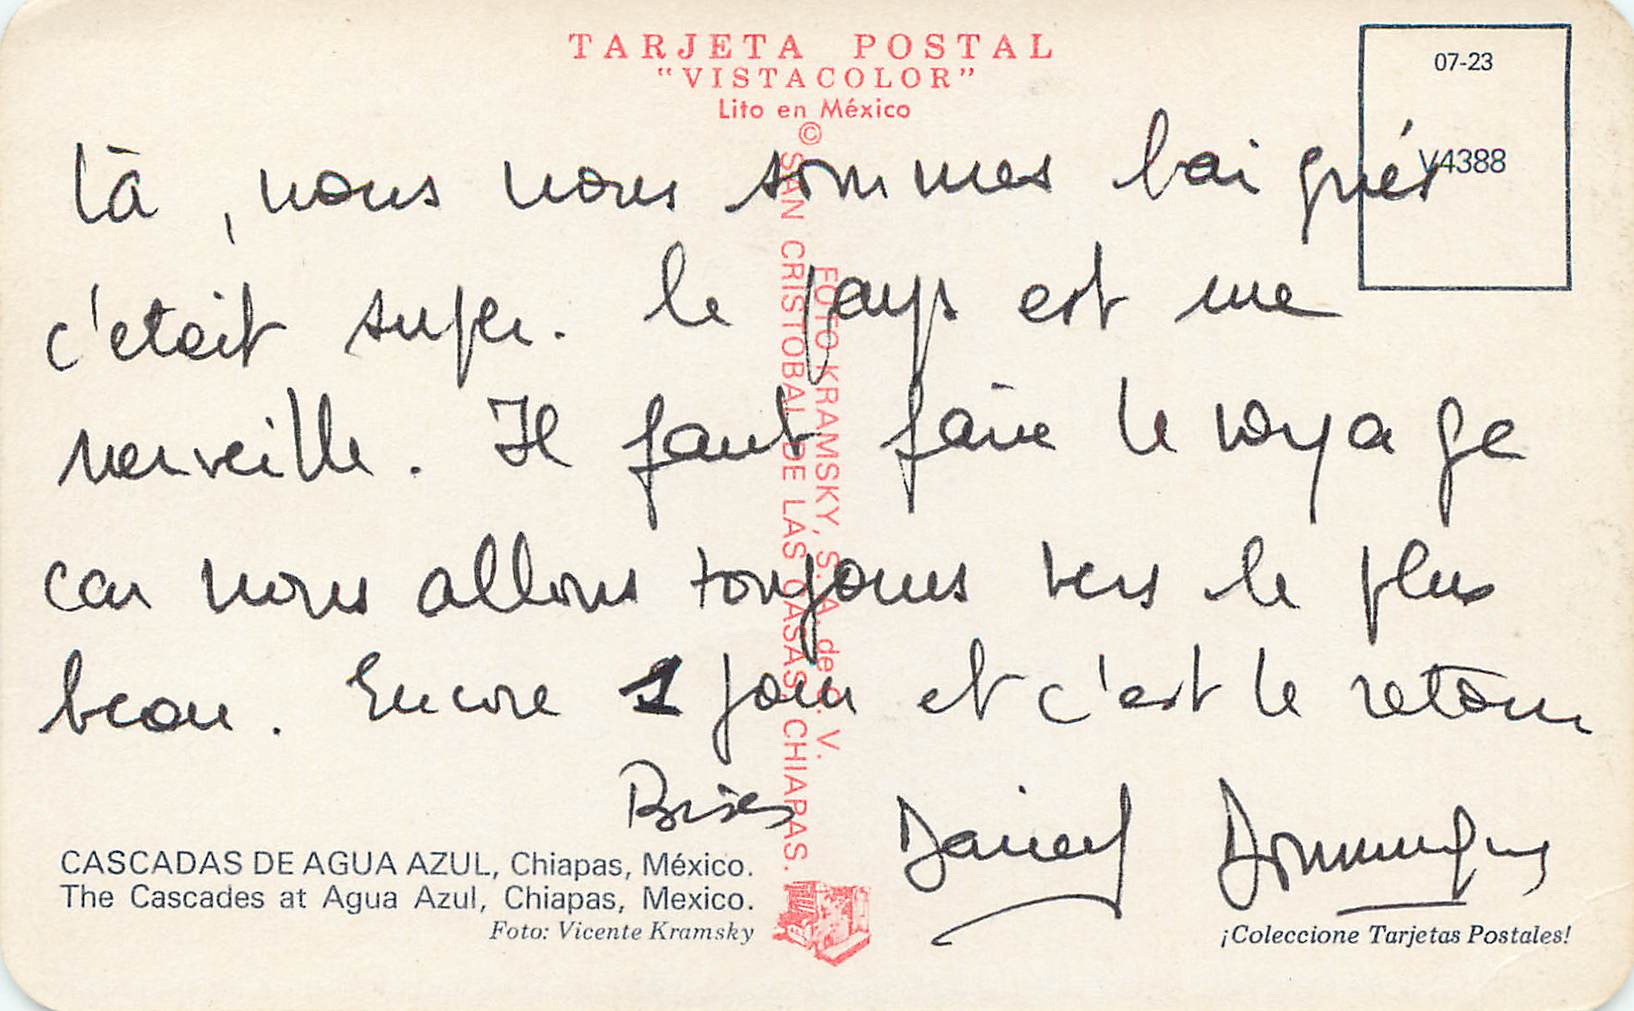 TARJETA POSTAL
"VISTACOLOR"
Lito en México
©
07-23
V4388
SAN CRISTOBAL DE LAS CASAS, CHIAPAS.
FOTO KRAMSKY, S. A. de C. V.
là, nous nous sommes baignés
c'etait super. le pays est une
merveille. Il faut faire le voyage
car nous allons toujours vers le plus
beau. Encore 1 jour et c'est le retour
Bises
CASCADAS DE AGUA AZUL, Chiapas, México.
The Cascades at Agua Azul, Chiapas, Mexico.
Foto: Vicente Kramsky
¡Coleccione Tarjetas Postales!